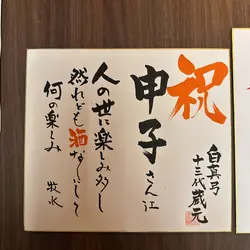 祝
申子さん江
白真弓
十三代蔵元
人の世に楽しみ多し
然れども酒なしにして
何の楽しみ
牧水